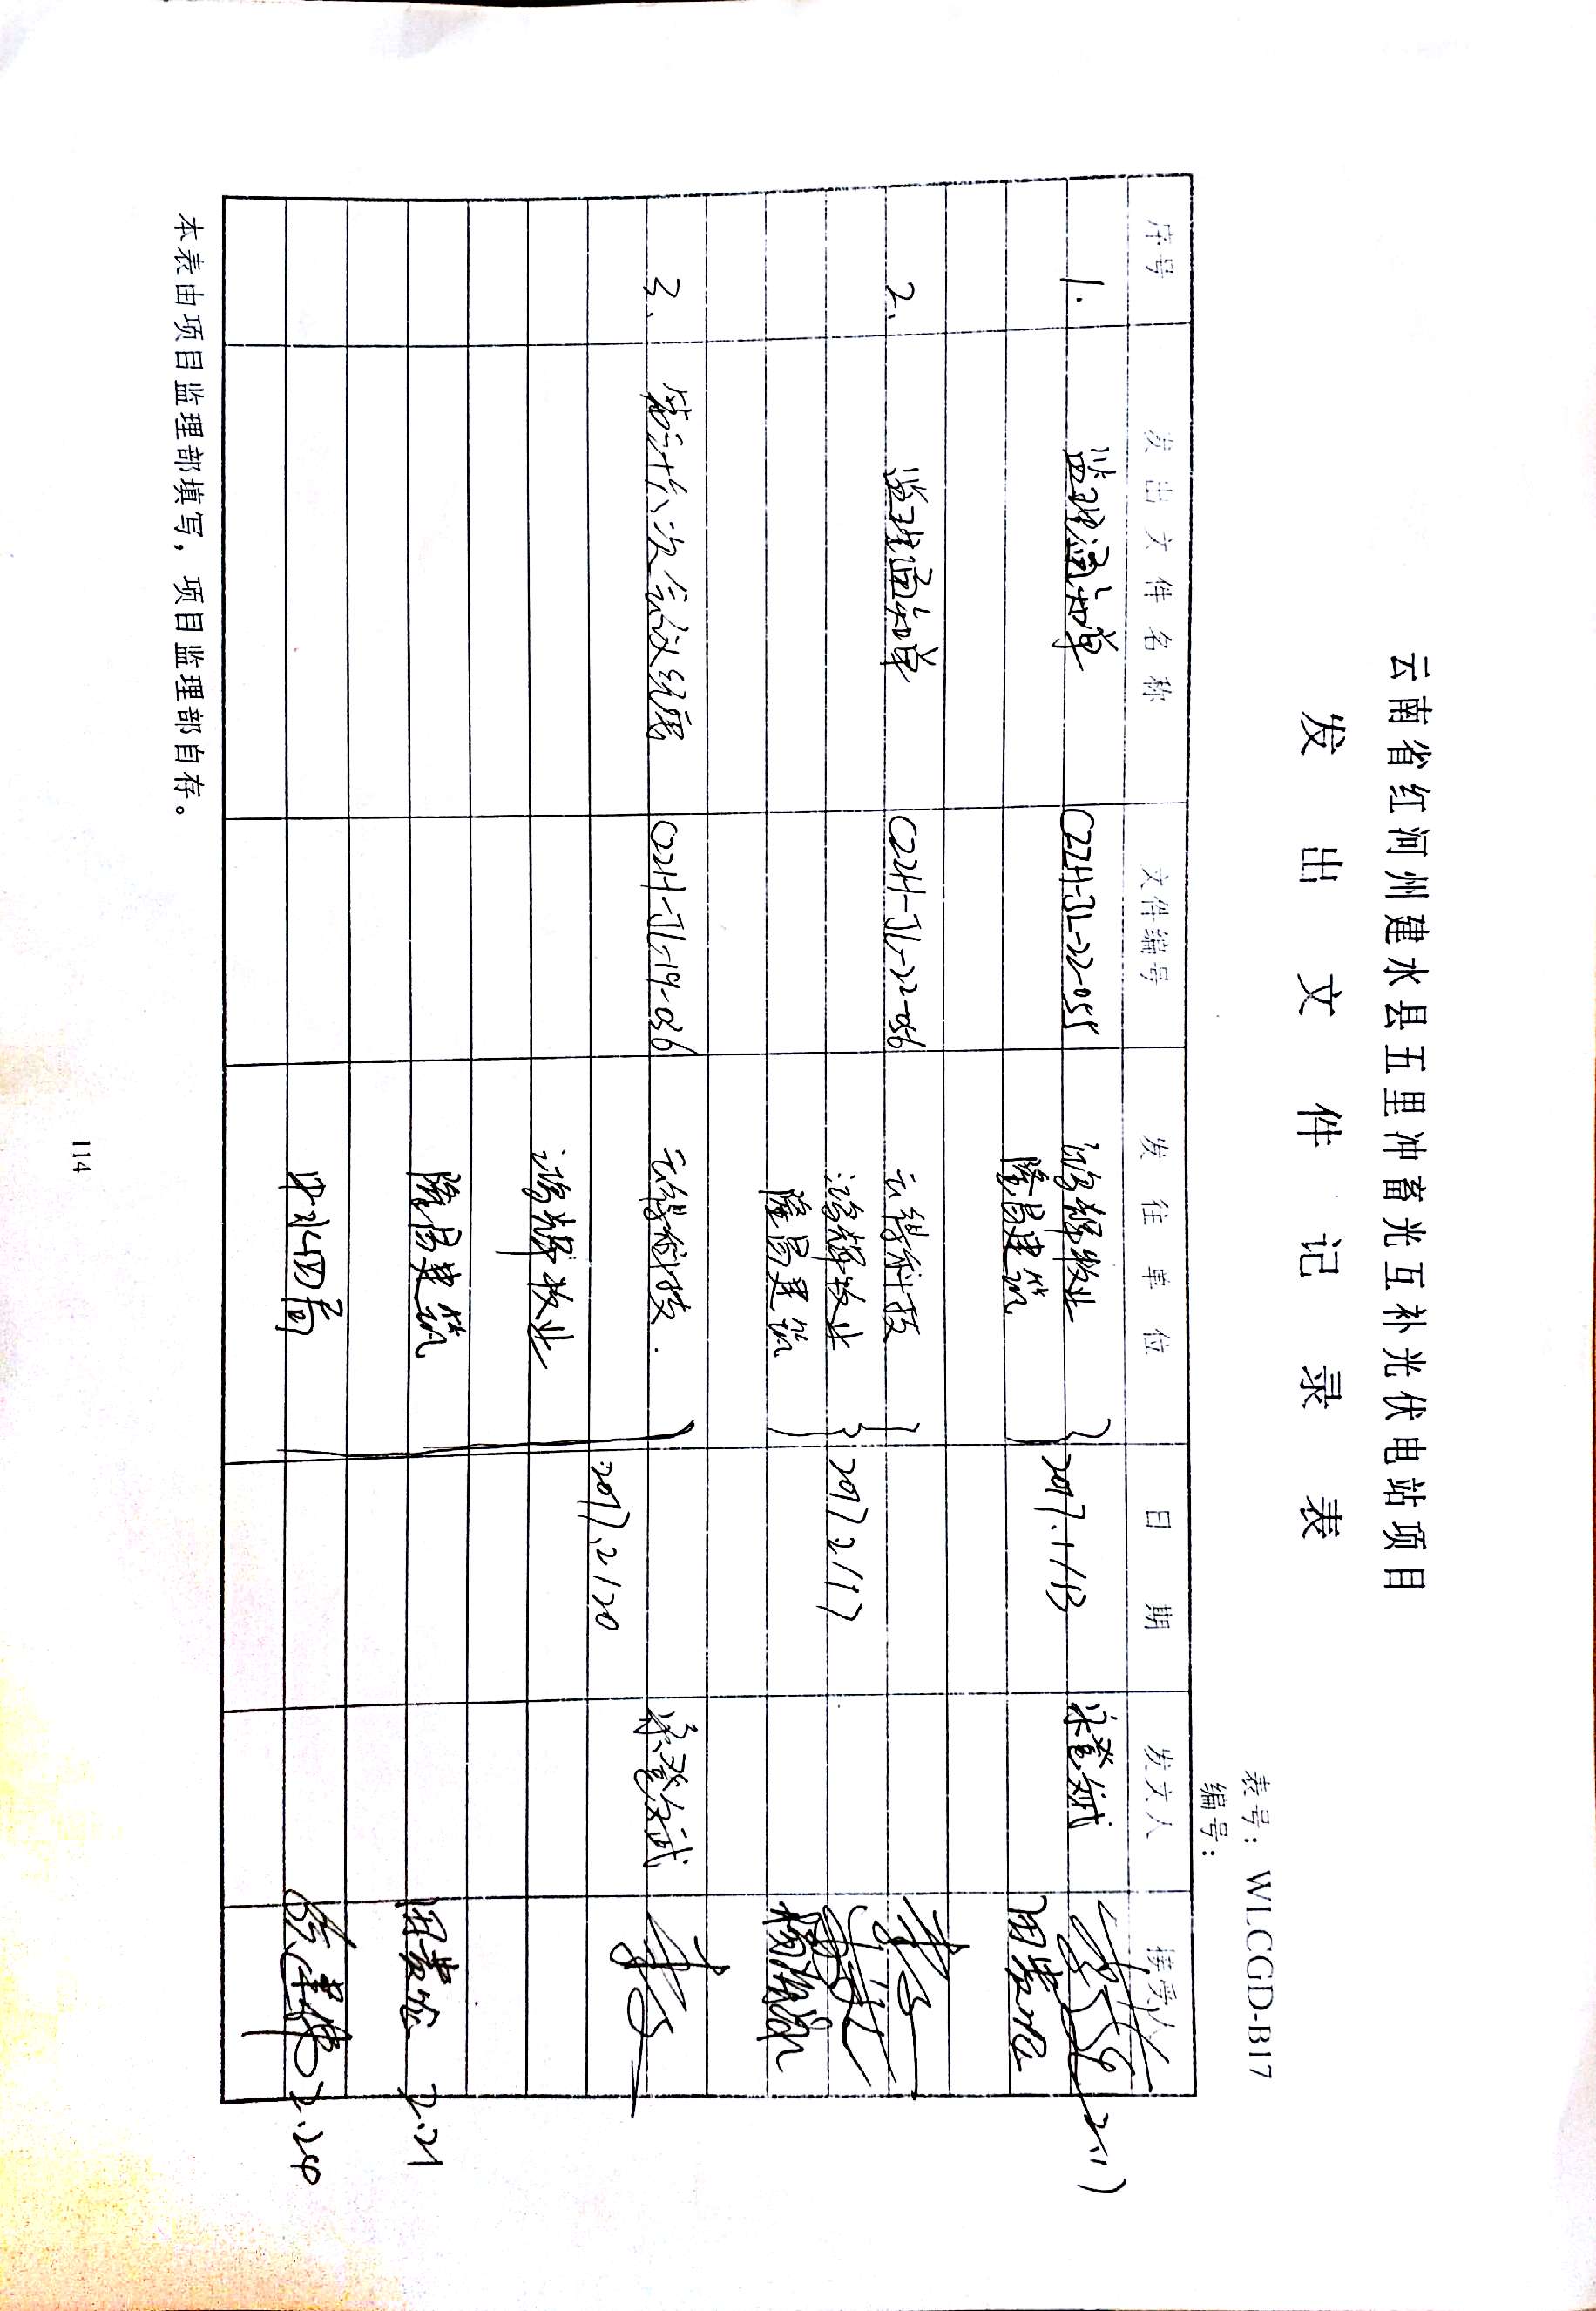 云南省红河州建水县五里冲畜光互补光伏电站项目
发出文件记录表
表号：WLCGD-B17
编号：
序号 发出文件名称 文件编号 发往单位 日期 发文人 接受人
1. 监理通知单 CZZH-JL-22-055 鸿辉牧业 2017.1/13
隆昌建筑
2、 监理通知单 CZZH-JL-22-056 云得科技
鸿辉牧业 2017.2/17
隆昌建筑
3、 第三十六次会议纪要 CZZH-JL-19-036 云得科技
2017.2/20
鸿辉牧业
隆昌建筑 2.21
中水四局
本表由项目监理部填写，项目监理部自存。
114